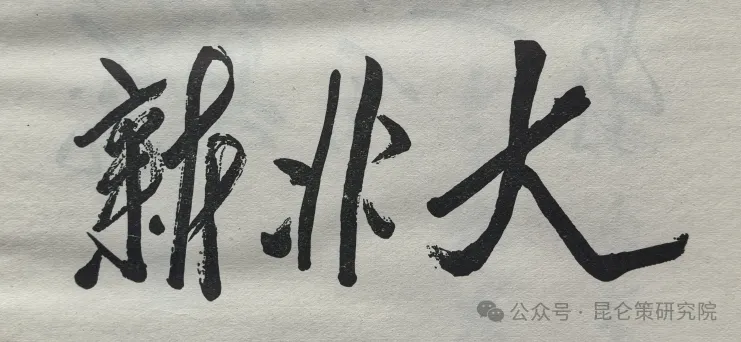 新北大
公众号·昆仑策研究院